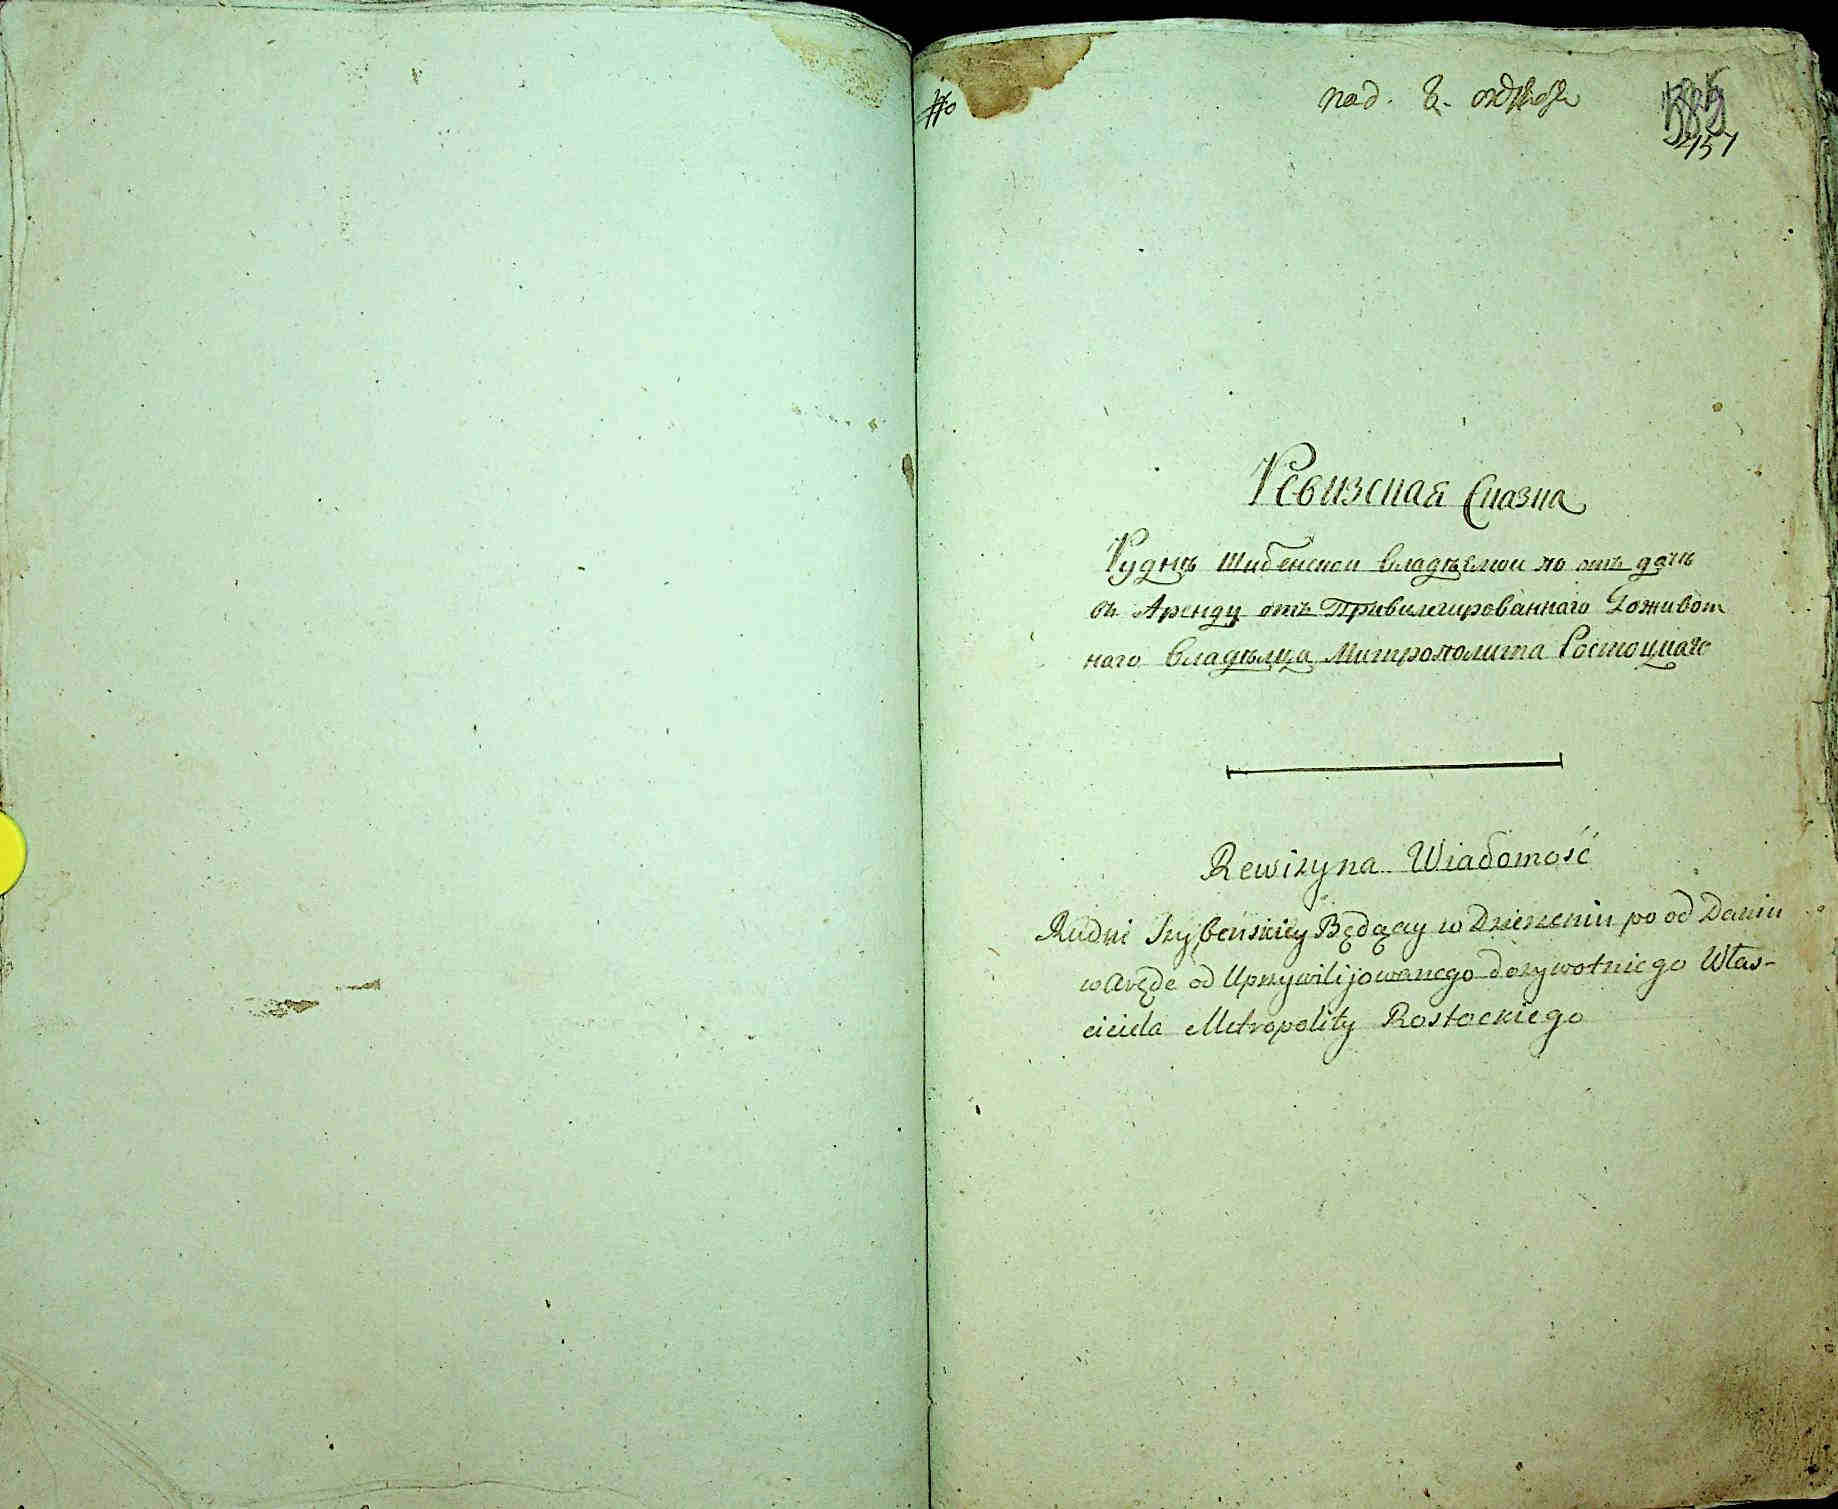 под. 8. октября
457
Ревизская Сказка
Руднѣ Шибенской владѣемой по отъ дачѣ
въ Аренду отъ Привилегированнаго Доживот
наго владѣльца Митрополита Ростоцкаго
Rewizyna Wiadomość
Rudni Szybeńskiey Będącey w Dzierzeniu po od Daniu
w Arędę od Uprzywilijowanego dożywotniego Włas-
ciciela Metropolity Rostockiego